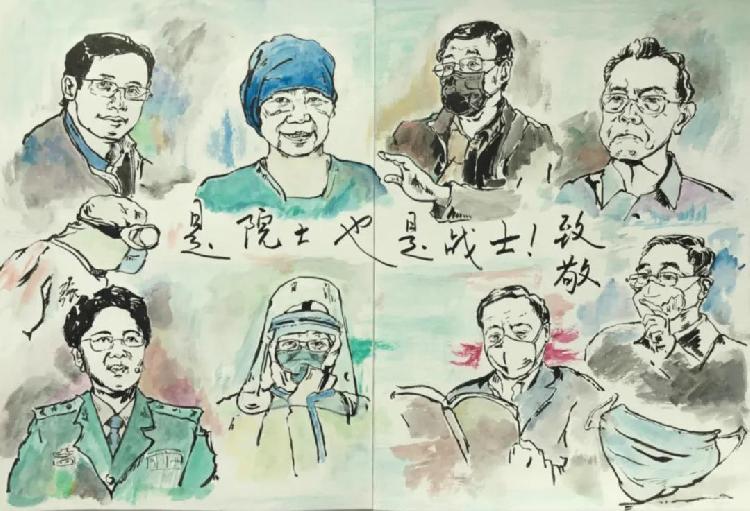 是院士也是战士！致
敬